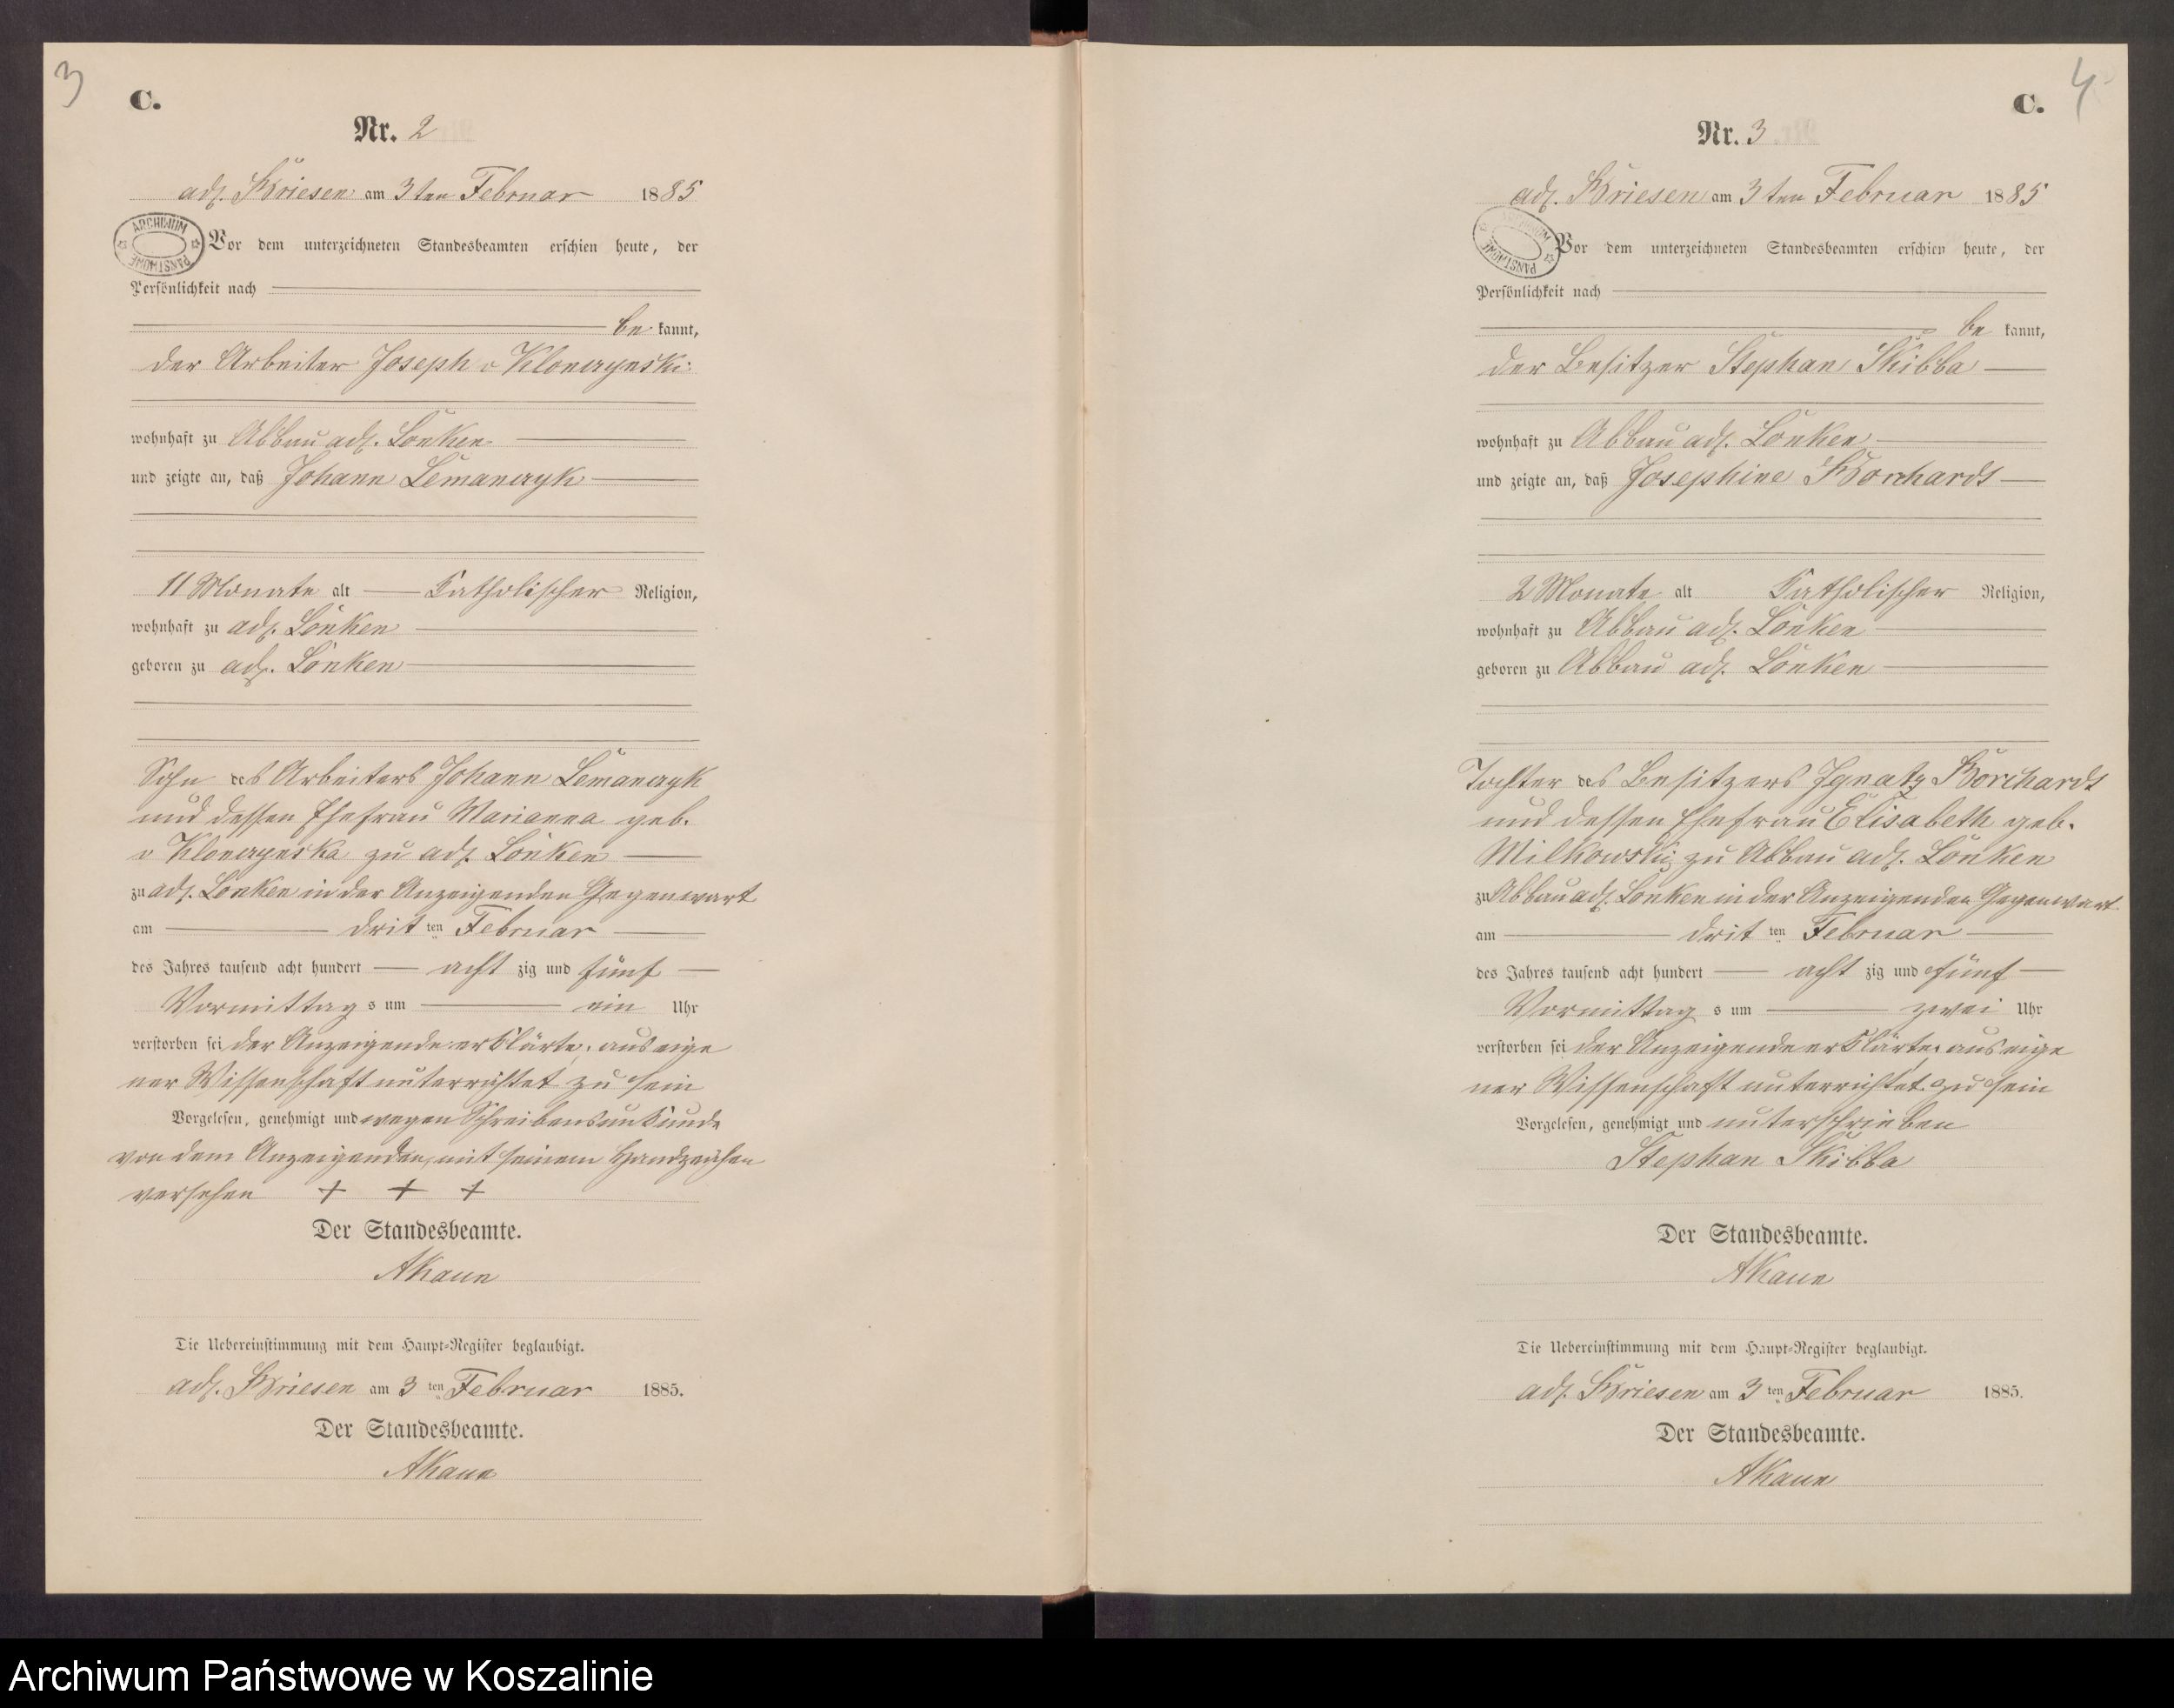 3
C.
Nr. 2
adl. Briesen am 3ten Februar 1885
ARCHIWUM PAŃSTWOWE
Vor dem unterzeichneten Standesbeamten erschien heute, der
Persönlichkeit nach
be kannt,
der Arbeiter Joseph v Klonczynski
wohnhaft zu Abbau adl. Lonken
und zeigte an, daß Johann Lemanczyk
11 Monate alt Katholischer Religion,
wohnhaft zu adl. Lonken
geboren zu adl. Lonken
Sohn des Arbeiters Johann Lemanczyk
und dessen Ehefrau Marianna geb.
v Klonczynska zu adl. Lonken
zu adl. Lonken in der Anzeigenden Gegenwart
am drit ten Februar
des Jahres tausend acht hundert acht zig und fünf
Vormittag s um ein Uhr
verstorben sei der Anzeigende erklärte, aus eige
ner Wissenschaft unterrichtet zu sein
Vorgelesen, genehmigt und wegen Schreibensunkunde
von dem Anzeigenden, mit seinem Handzeichen
versehen + + +
Der Standesbeamte.
AKaun
Die Uebereinstimmung mit dem Haupt-Register beglaubigt.
adl. Briesen am 3 ten Februar 1885.
Der Standesbeamte.
AKaun
4
C.
Nr. 3
adl. Briesen am 3ten Februar 1885
ARCHIWUM PAŃSTWOWE
Vor dem unterzeichneten Standesbeamten erschien heute, der
Persönlichkeit nach
be kannt,
der Besitzer Stephan Skibba
wohnhaft zu Abbau adl. Lonken
und zeigte an, daß Josephine Borchardt
2 Monate alt Katholischer Religion,
wohnhaft zu Abbau adl. Lonken
geboren zu Abbau adl. Lonken
Tochter des Besitzers Ignatz Borchardt
und dessen Ehefrau Elisabeth geb.
Milkowski zu Abbau adl. Lonken
zu Abbau adl. Lonken in der Anzeigenden Gegenwart
am drit ten Februar
des Jahres tausend acht hundert acht zig und fünf
Vormittag s um zwei Uhr
verstorben sei der Anzeigende erklärte, aus eige
ner Wissenschaft unterrichtet zu sein
Vorgelesen, genehmigt und unterschrieben
Stephan Skibba
Der Standesbeamte.
AKaun
Die Uebereinstimmung mit dem Haupt-Register beglaubigt.
adl. Briesen am 3 ten Februar 1885.
Der Standesbeamte.
AKaun
Archiwum Państwowe w Koszalinie